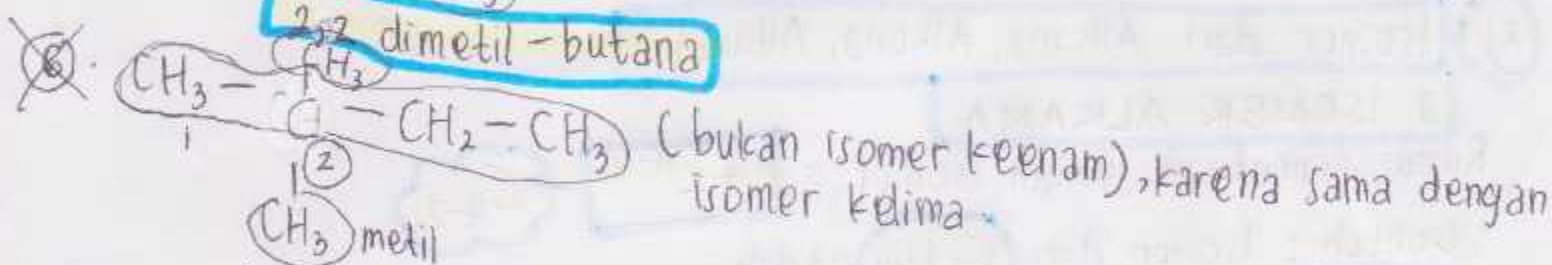 2,2 dimetil-butana
6. CH3
CH3 - C - CH2 - CH3 (bukan isomer keenam), karena sama dengan
1 2 isomer kelima.
CH3 metil